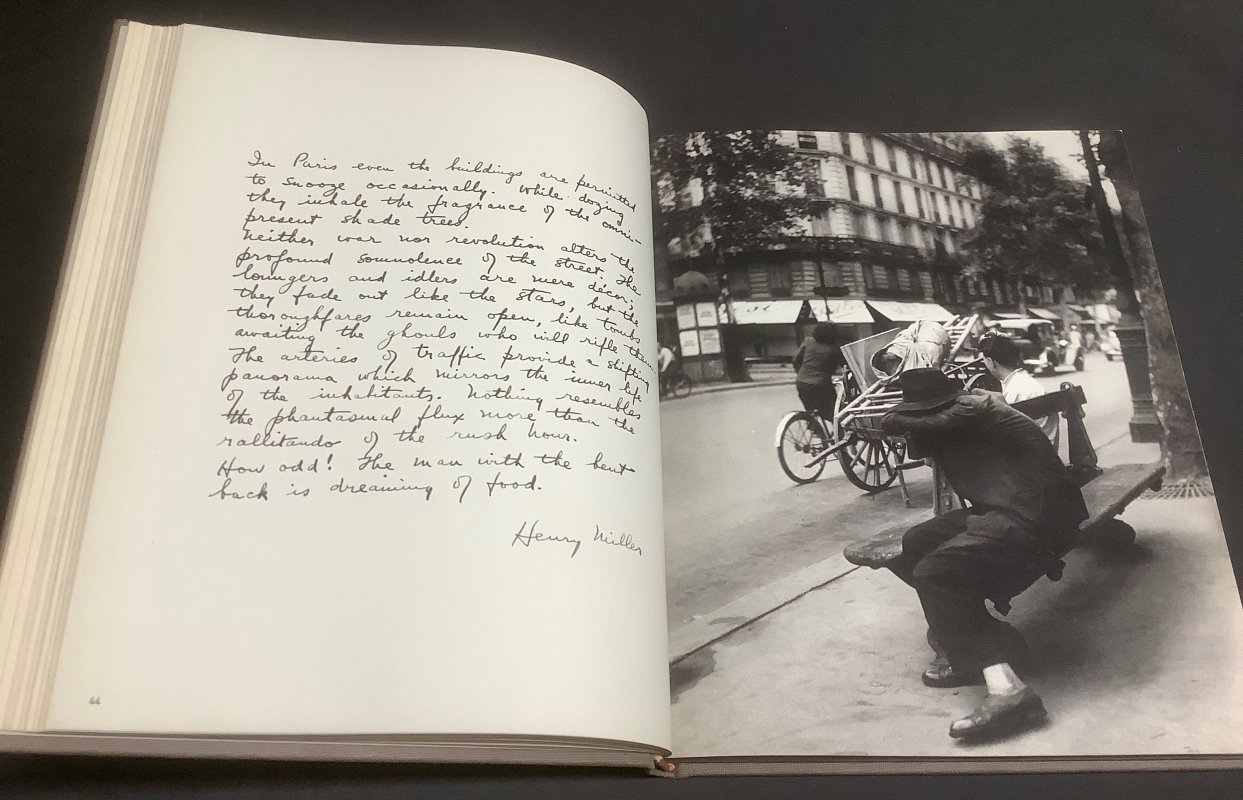 In Paris even the buildings are permitted
to snooze occasionally. While dozing
they inhale the fragrance of the omni-
present shade trees.
Neither war nor revolution alters the
profound somnolence of the street. The
loungers and idlers are mere décor;
they fade out like the stars, but the
thoroughfares remain open, like tombs
awaiting the ghouls who will rifle them.
The arteries of traffic provide a shifting
panorama which mirrors the inner life
of the inhabitants. Nothing resembles
the phantasmal flux more than the
rallitando of the rush hour.
How odd! The man with the bent
back is dreaming of food.
Henry Miller
44